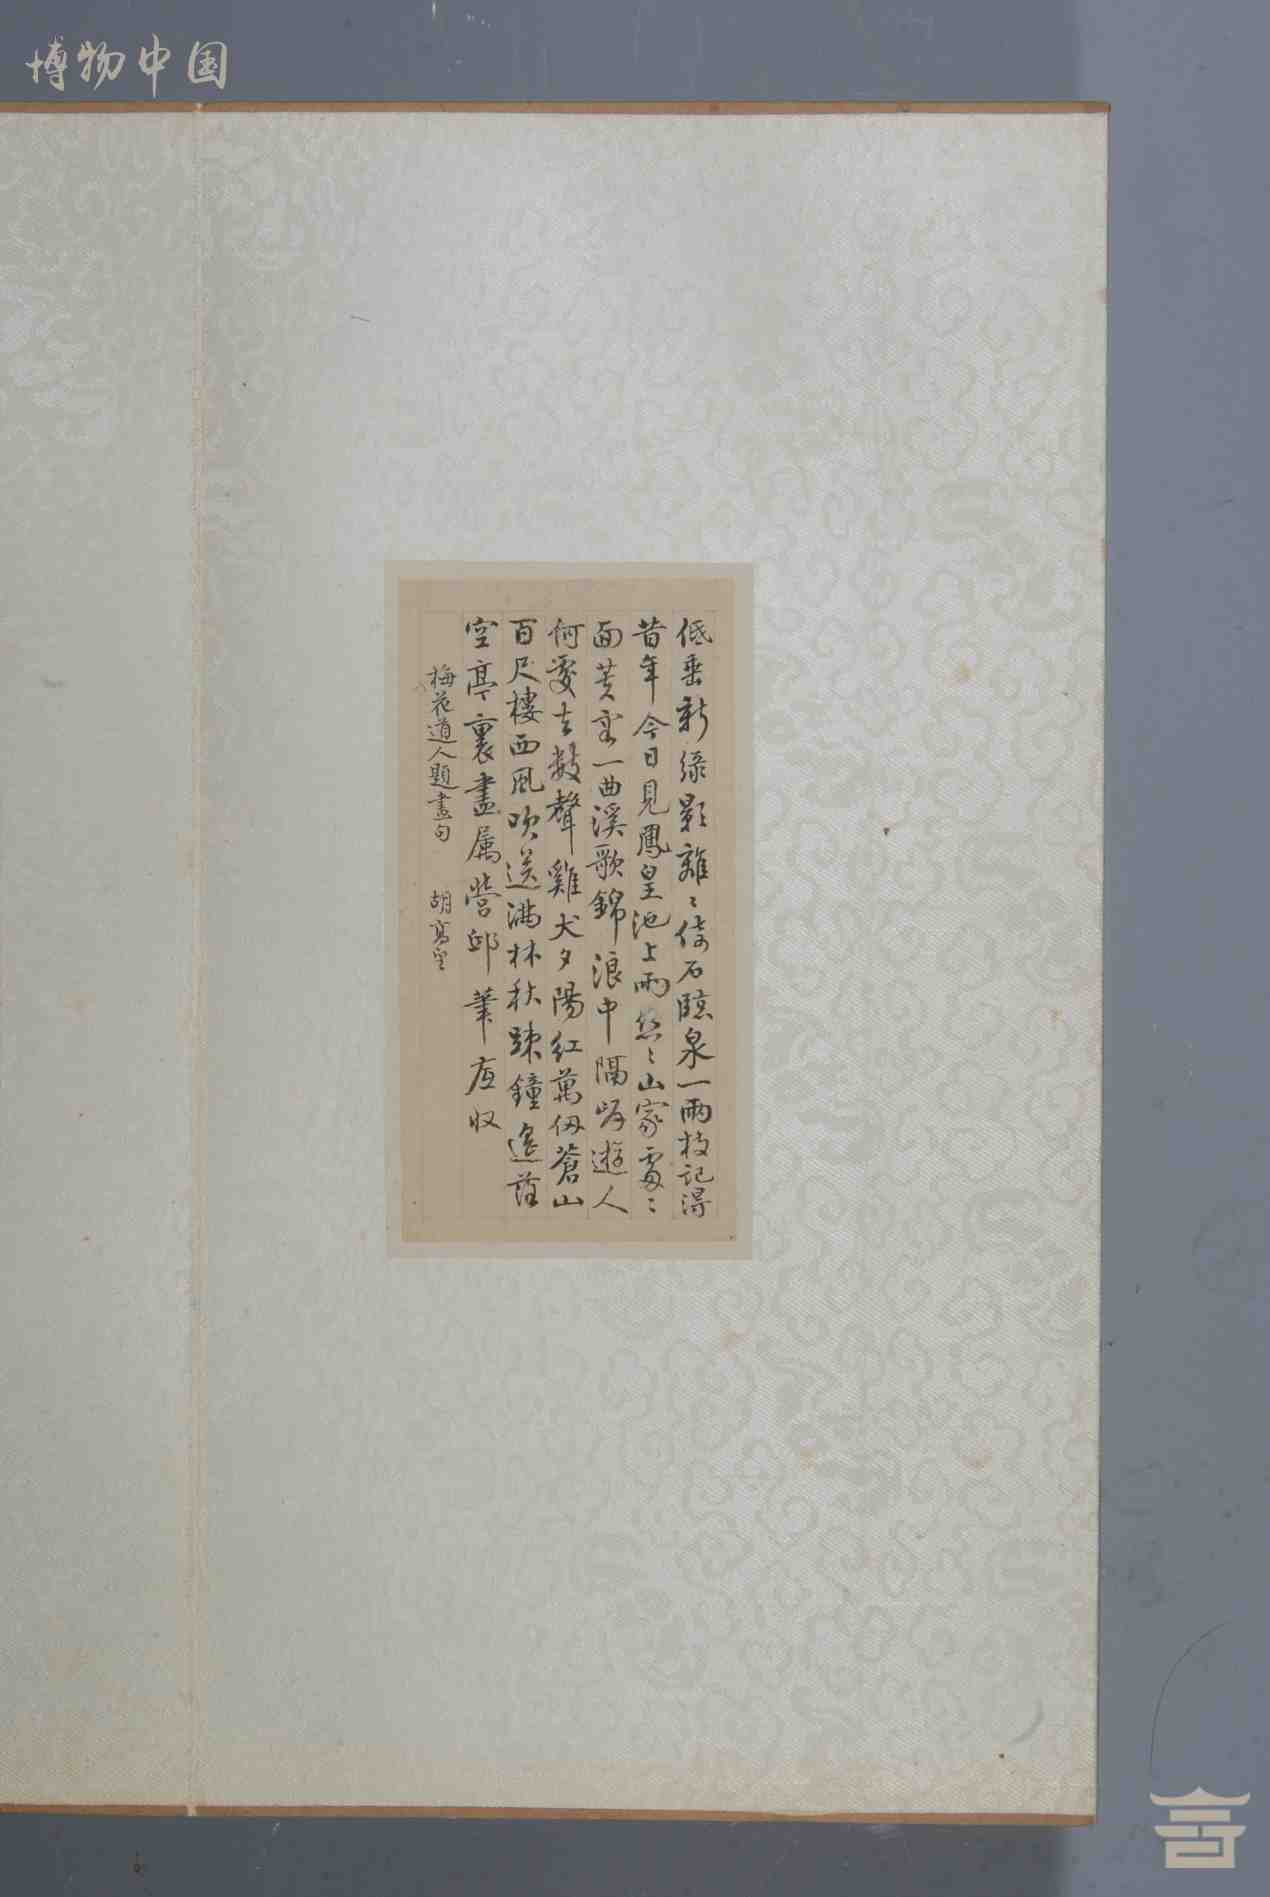 博物中国
低垂新綠影離〻倚石臨泉一兩枝記得
昔年今日見鳳皇池上雨絲〻山家處〻
面芙蓉一曲溪歌錦浪中隔岸遊人
何處去數聲雞犬夕陽紅萬仞蒼山
百尺樓西風吹送滿林秋踈鐘遙落
空亭裏盡属營邱筆底收
梅花道人題畫句 胡寫